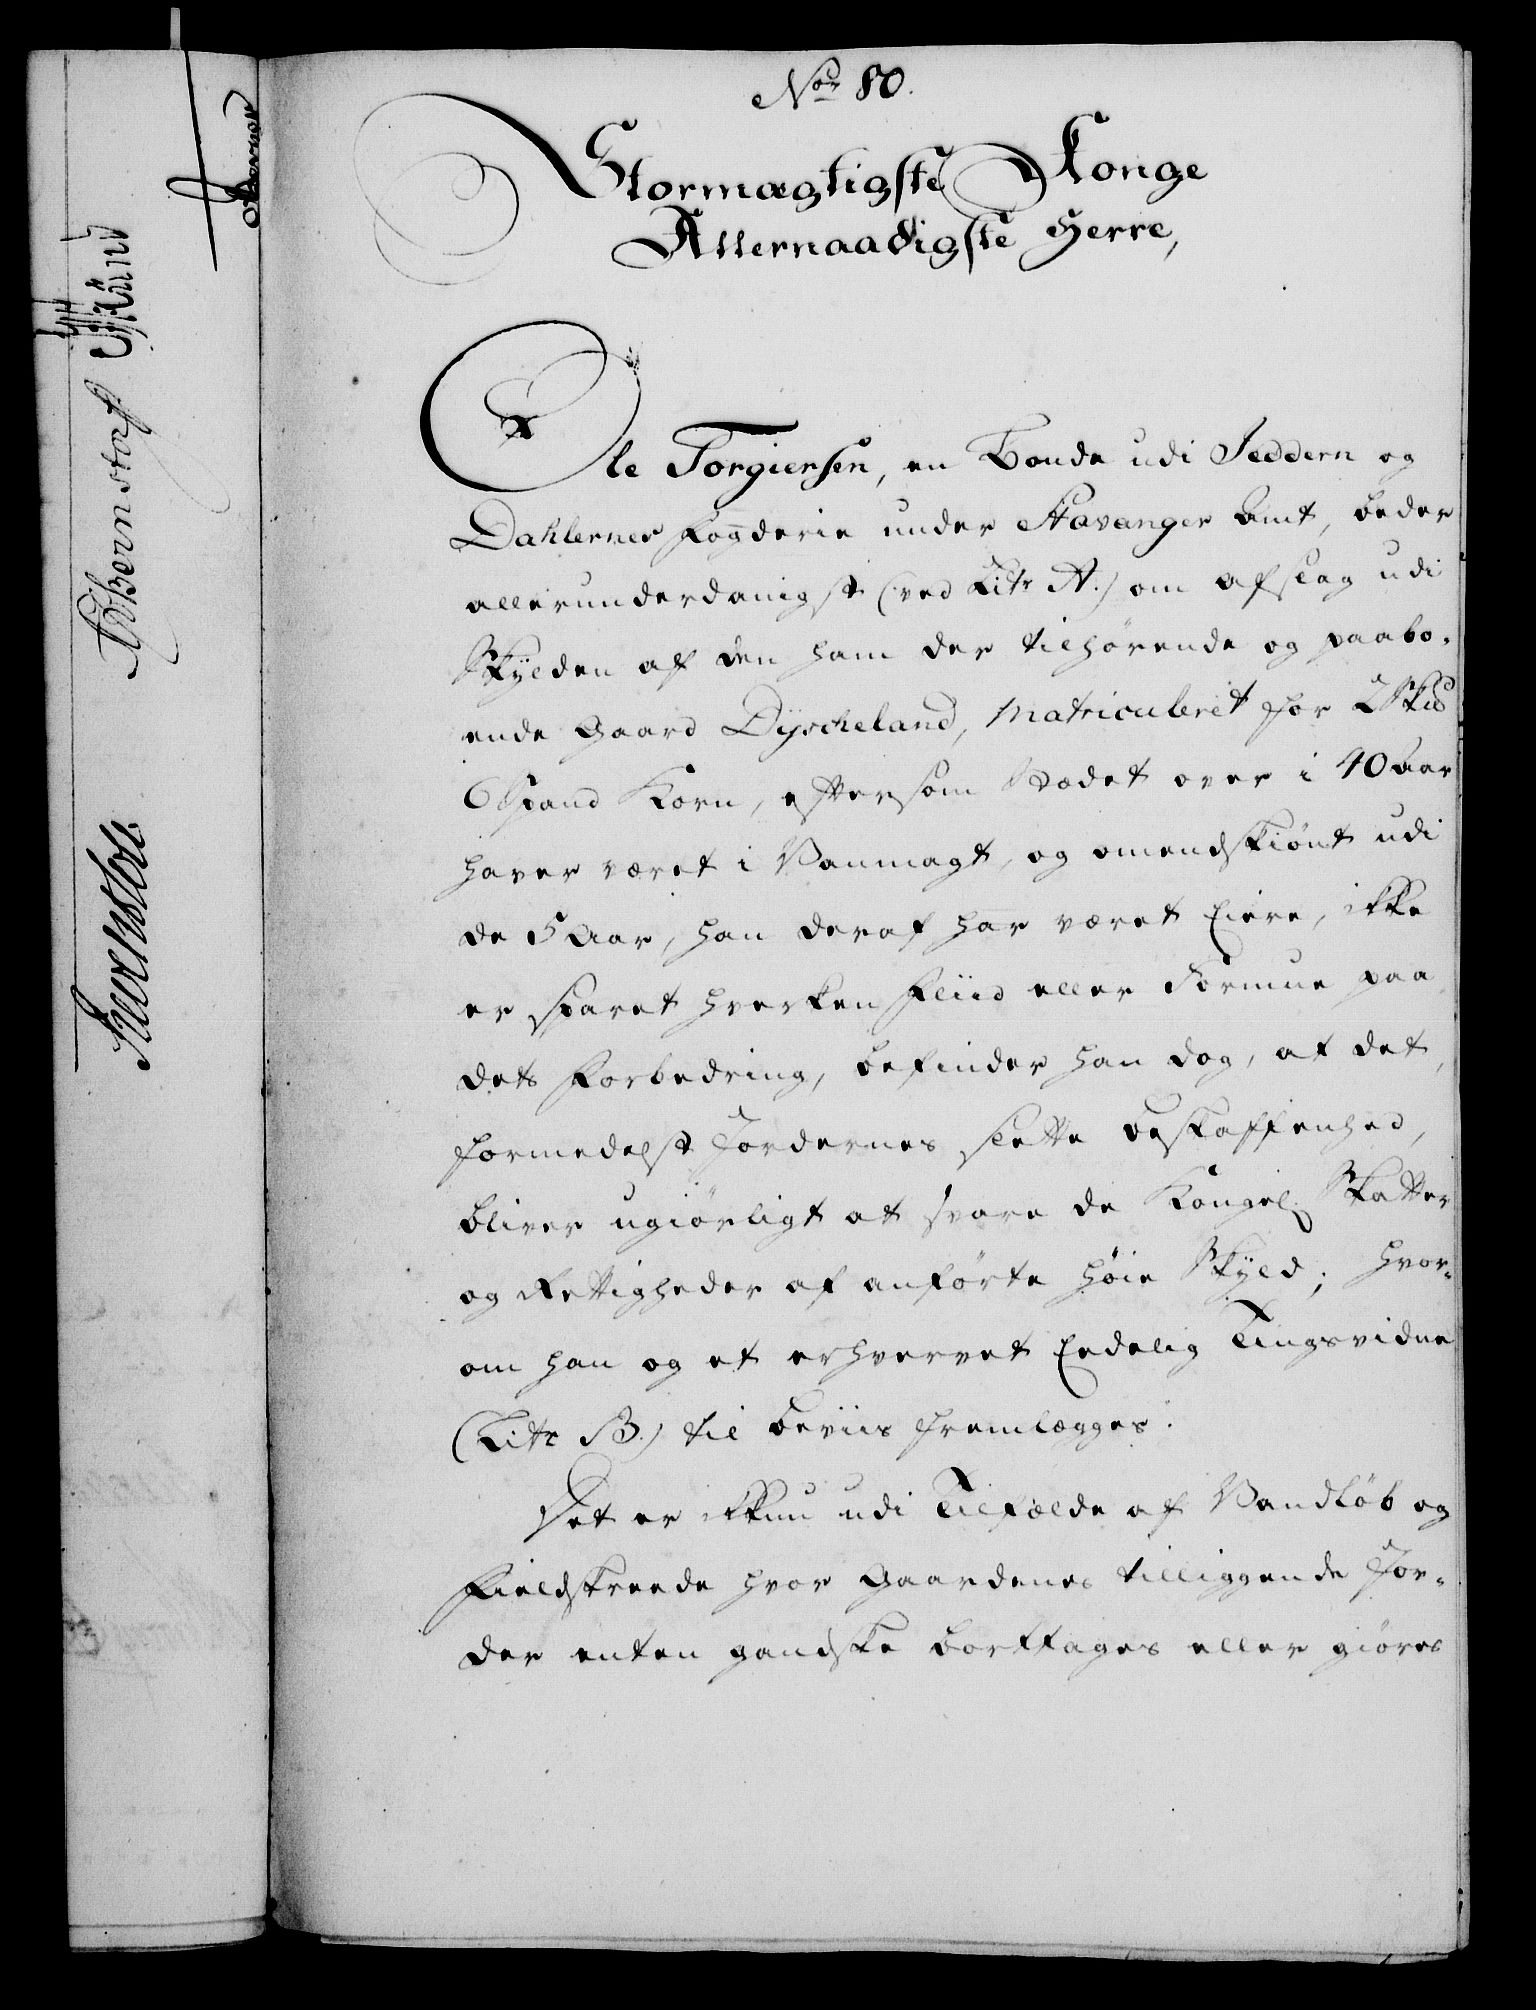 No 80.
Stormægtigste Konge
Allernaadigste Herre,
Ole Torgiersen, en Bonde udi Jeddern og
Dahlernes Fogderie under Stavanger Amt, beder
allerunderdanigst (ved Litr A.) om afslag udi
Skylden af den ham der tilhørende og paabo-
ende Gaard Dyscheland, Matriculeret for
6 Spand Korn, eftersom Stædet over i 40 Aar
haver været i Vanmagt, og omendskiønt udi
de 5 Aar, han deraf har været Eiere, ikke
er sparet hverken Fliid eller Formue paa
dets Forbedring, befinder han dog, at det,
formedelst Jordernes slette beskaffenhed,
bliver ugiørligt at svare de Kongel. Skatter
og Rettigheder af anførte høie Skyld; hvor-
om han og et erhvervet Eedelig Tingsvidne
(Litr B.) til beviis fremlægges.
Det er ikkun udi Tilfælde af Vandløb og
Fieldskreede hvor Gaardenes tilliggende Jor-
der enten gandske borttages eller giøres